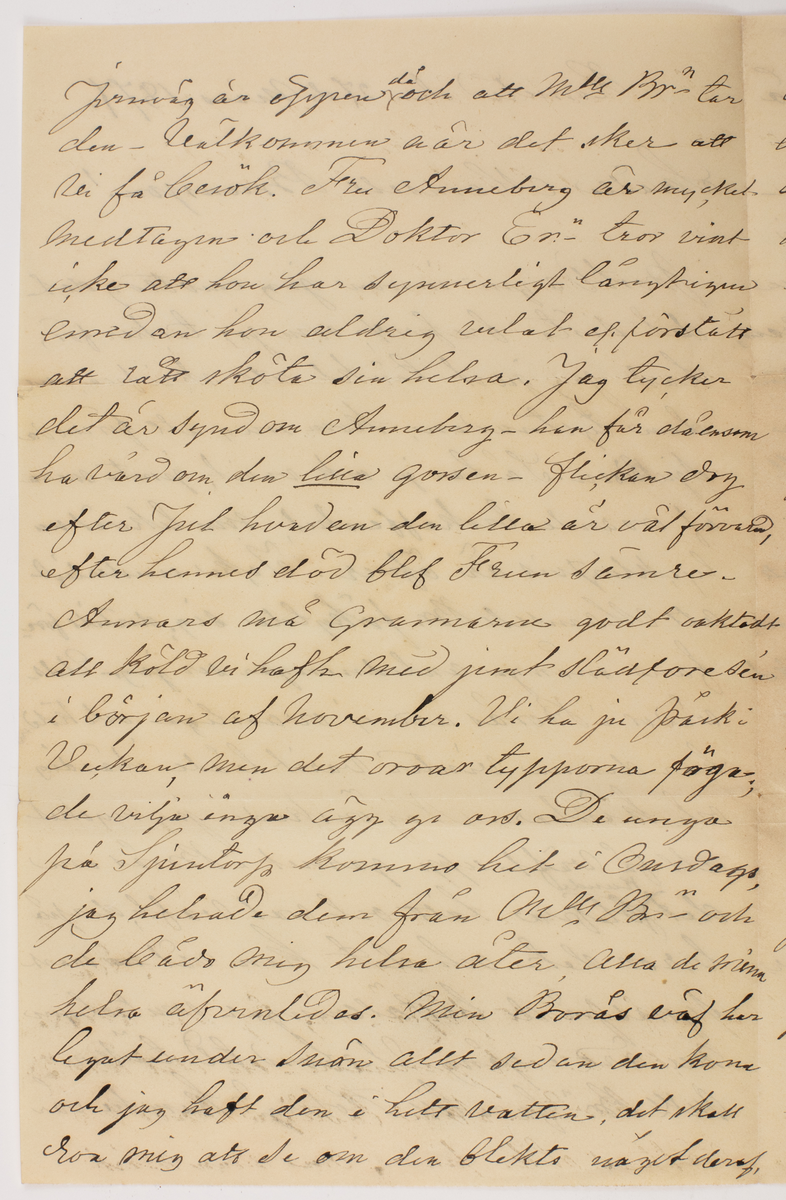 Jernväg är öppen då och att Mlle Br-n tar
den - Välkommen när det sker att
Vi få besök. Fru Anneberg är mycket
medtagen och Doktor Er-n tror visst
icke att hon har synnerligt långt igen
emedan hon aldrig velat el. förstått
att rätt sköta sin helsa. Jag tycker
det är synd om Anneberg - han får då ensam
ha vård om den lilla gossen - flickan dog
efter Jul hvadan den lilla är väl förvarad,
efter hennes död blef Frun sämre.
Annars må Grannarne godt oaktadt
all köld vi haft med jemt slädföre sen
i början af November. Vi ha ju Påsk i
Veckan, men det oroar typporna föga;
de vilja inga ägg ge oss. De unga
på Sjuntorp kommo hit i Onsdags,
jag helsade dem från Mlle Br-n och
de bådo mig helsa åter, alla de mina
helsa äfvenledes. Min Borås väf har
legat under snön allt sedan den kom
och jag haft den i hett vatten, det skall
roa mig att se om den blekts något deraf,